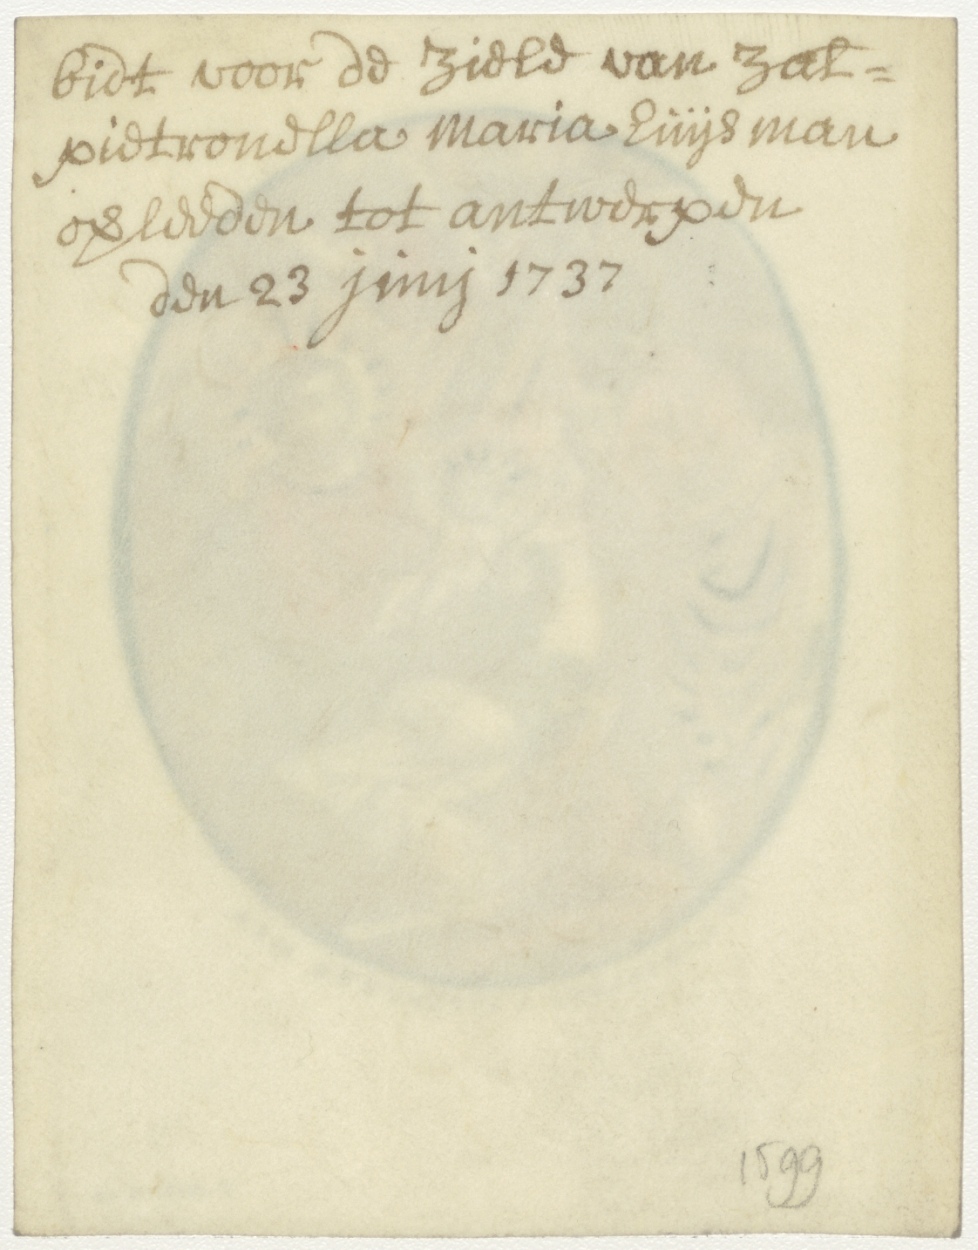 bidt voor de ziele van zal=
pietronella Maria Huijsman
overleeden tot antwerpen
den 23 junij 1737
1599